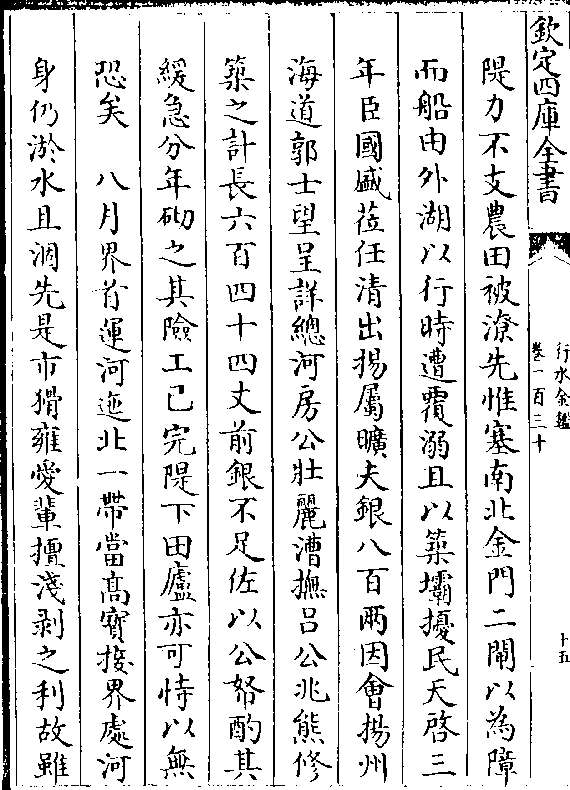 欽定四庫全書
行水金鑑
卷一百三十
十五
隄力不支農田被潦先惟塞南北金門二閘以為障
而船由外湖以行時遭覆溺且以築壩擾民天啓三
年臣國盛蒞任清出揚屬曠夫銀八百兩因會揚州
海道郭士望呈詳總河房公壯麗漕撫呂公兆熊修
築之計長六百四十四丈前銀不足佐以公帑酌其
緩急分年砌之其險工已完隄下田廬亦可恃以無
恐矣　八月界首運河迤北一帶當高寳接界處河
身仍淤水且涸先是市猾雍愛輩擅淺剥之利故雖